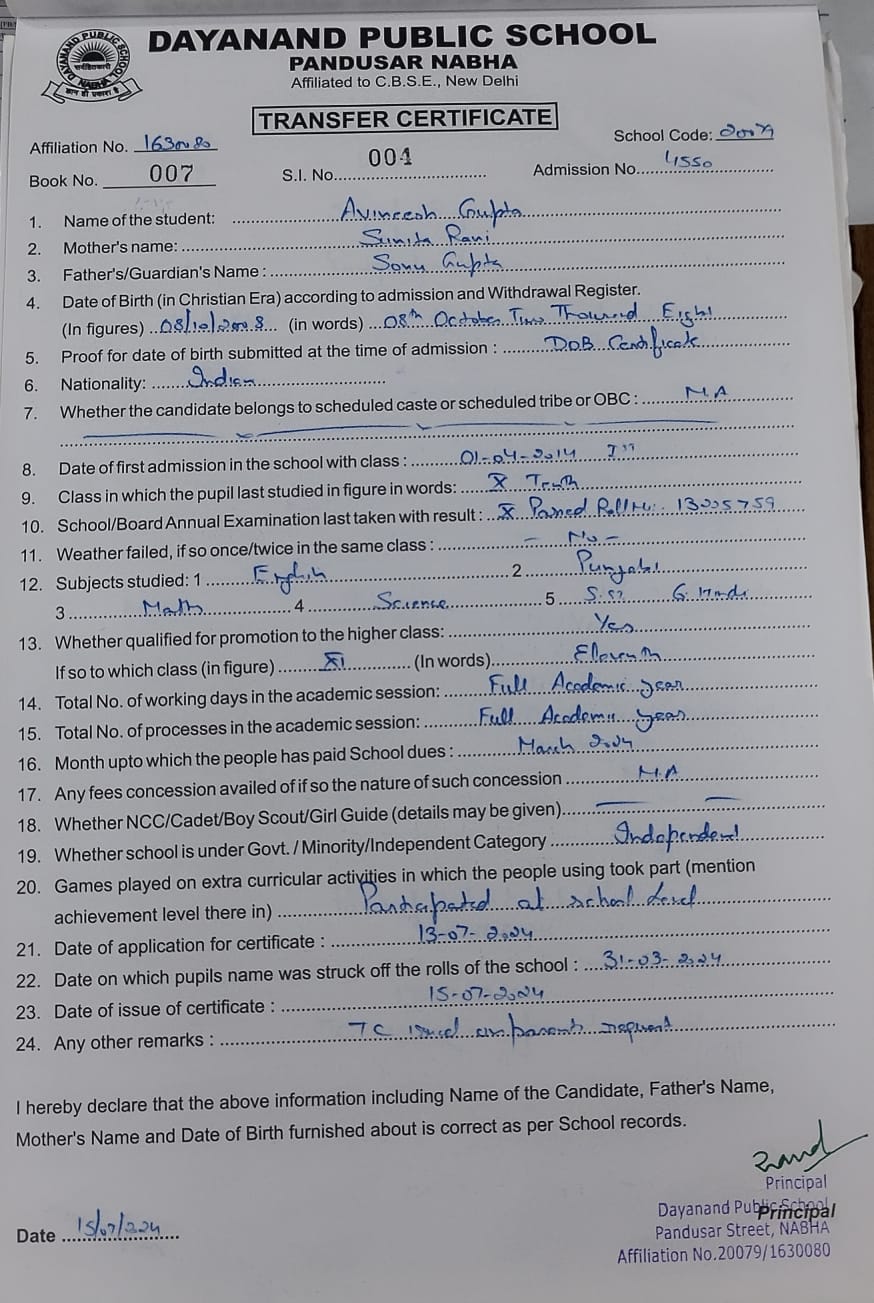 DAYANAND PUBLIC SCHOOL
PANDUSAR NABHA
Affiliated to C.B.S.E., New Delhi
DAYANAND PUBLIC SCHOOL
NABHA
TRANSFER CERTIFICATE
Affiliation No. 1630080 School Code: 20079
Book No. 007 S.I. No. 004 Admission No. 4550
1. Name of the student: Avineesh Gupta
2. Mother's name: Sunita Rani
3. Father's/Guardian's Name : Sonu Gupta
4. Date of Birth (in Christian Era) according to admission and Withdrawal Register.
(In figures) 08/10/2008 (in words) 08th October Two Thousand Eight
5. Proof for date of birth submitted at the time of admission : DOB Certificate
6. Nationality: Indian
7. Whether the candidate belongs to scheduled caste or scheduled tribe or OBC : N.A
8. Date of first admission in the school with class : 01-04-2014
9. Class in which the pupil last studied in figure in words: X Tenth
10. School/Board Annual Examination last taken with result : X Passed Roll No. 13205759
11. Weather failed, if so once/twice in the same class : - No -
12. Subjects studied: 1 English 2 Punjabi
3 Math 4 Science 5 S.St 6. Hindi
13. Whether qualified for promotion to the higher class: Yes
If so to which class (in figure) XI (In words) Eleventh
14. Total No. of working days in the academic session: Full Academic year
15. Total No. of processes in the academic session: Full Academic year
16. Month upto which the people has paid School dues : March 2024
17. Any fees concession availed of if so the nature of such concession N.A
18. Whether NCC/Cadet/Boy Scout/Girl Guide (details may be given)
19. Whether school is under Govt. / Minority/Independent Category Independent
20. Games played on extra curricular activities in which the people using took part (mention
achievement level there in) Participated at school Level
21. Date of application for certificate : 13-07-2024
22. Date on which pupils name was struck off the rolls of the school : 31-03-2024
23. Date of issue of certificate : 15-07-2024
24. Any other remarks : TC issued on parents request
I hereby declare that the above information including Name of the Candidate, Father's Name,
Mother's Name and Date of Birth furnished about is correct as per School records.
Principal
Dayanand Public School
Principal
Pandusar Street, NABHA
Date 15/07/2024
Affiliation No.20079/1630080